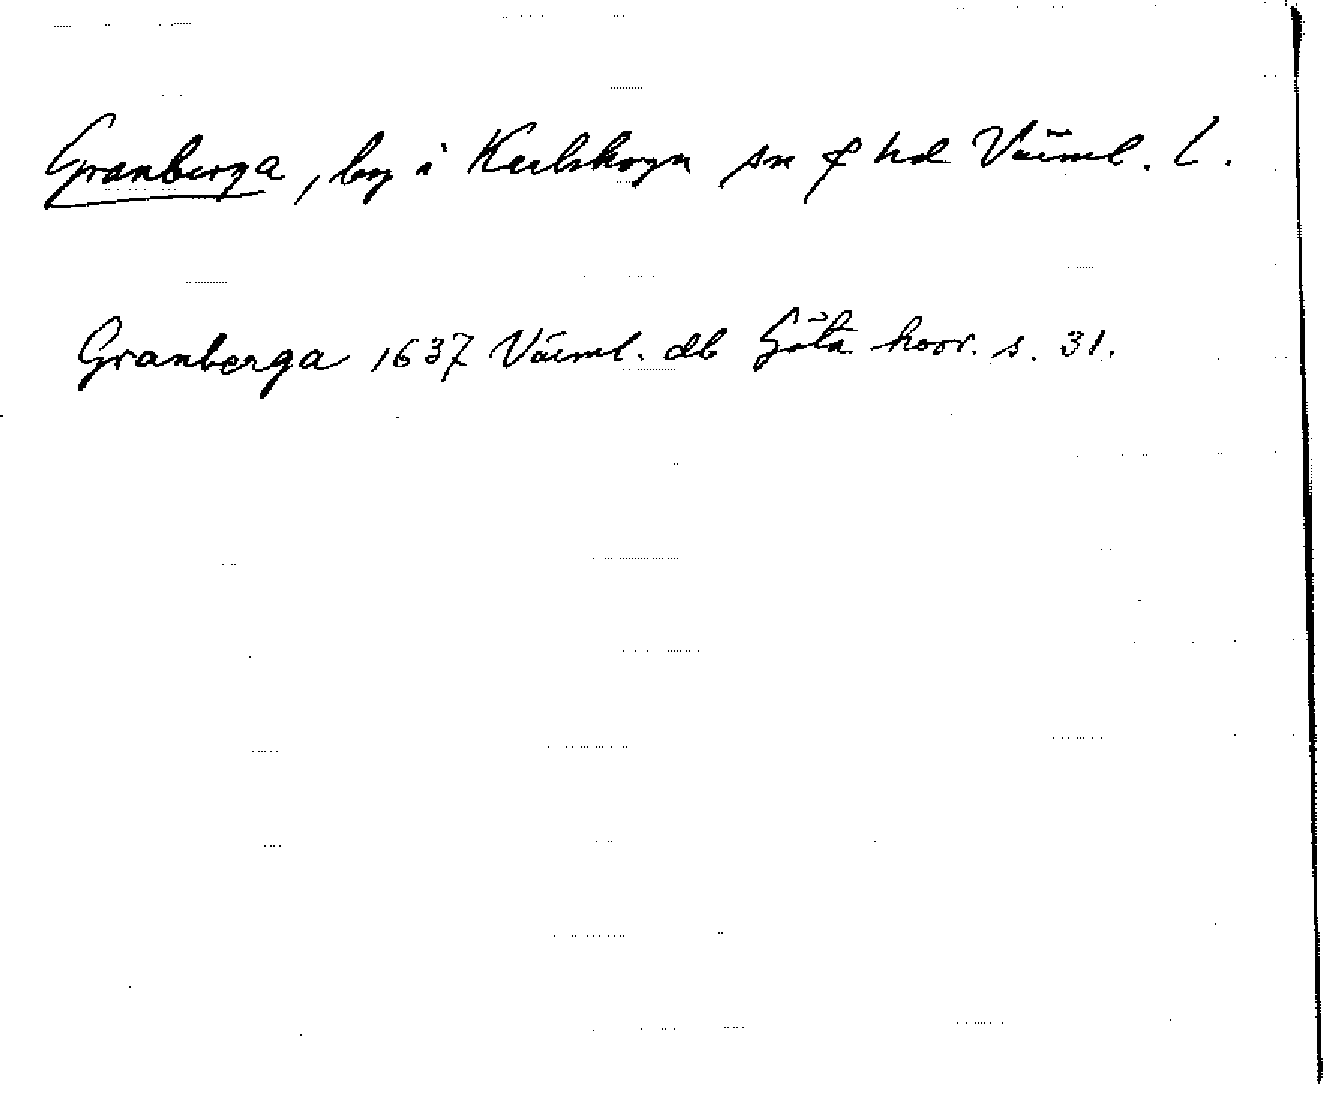 Granberga, by i Karlskoga sn & hd Värml. l.
Granberga 1637 Värml. db Göta hovr. s. 31.